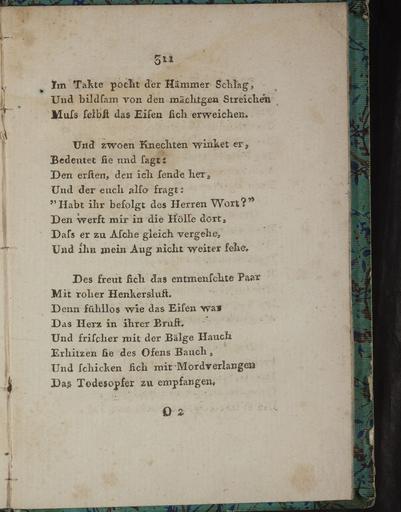 311
Im Takte pocht der Hämmer Schlag,
Und bildſam von den mächtgen Streichen
Muſs ſelbſt das Eiſen ſich erweichen.
Und zwoen Knechten winket er,
Bedeutet ſie und ſagt:
Den erſten, den ich ſende her,
Und der euch alſo fragt:
"Habt ihr befolgt des Herren Wort?"
Den werft mir in die Hölle dort,
Daſs er zu Aſche gleich vergehe,
Und ihn mein Aug nicht weiter ſehe.
Des freut ſich das entmenſchte Paar
Mit roher Henkersluſt.
Denn fühllos wie das Eiſen war
Das Herz in ihrer Bruſt.
Und friſcher mit der Bälge Hauch
Erhitzen ſie des Ofens Bauch,
Und ſchicken ſich mit Mordverlangen
Das Todesopfer zu empfangen.
O 2